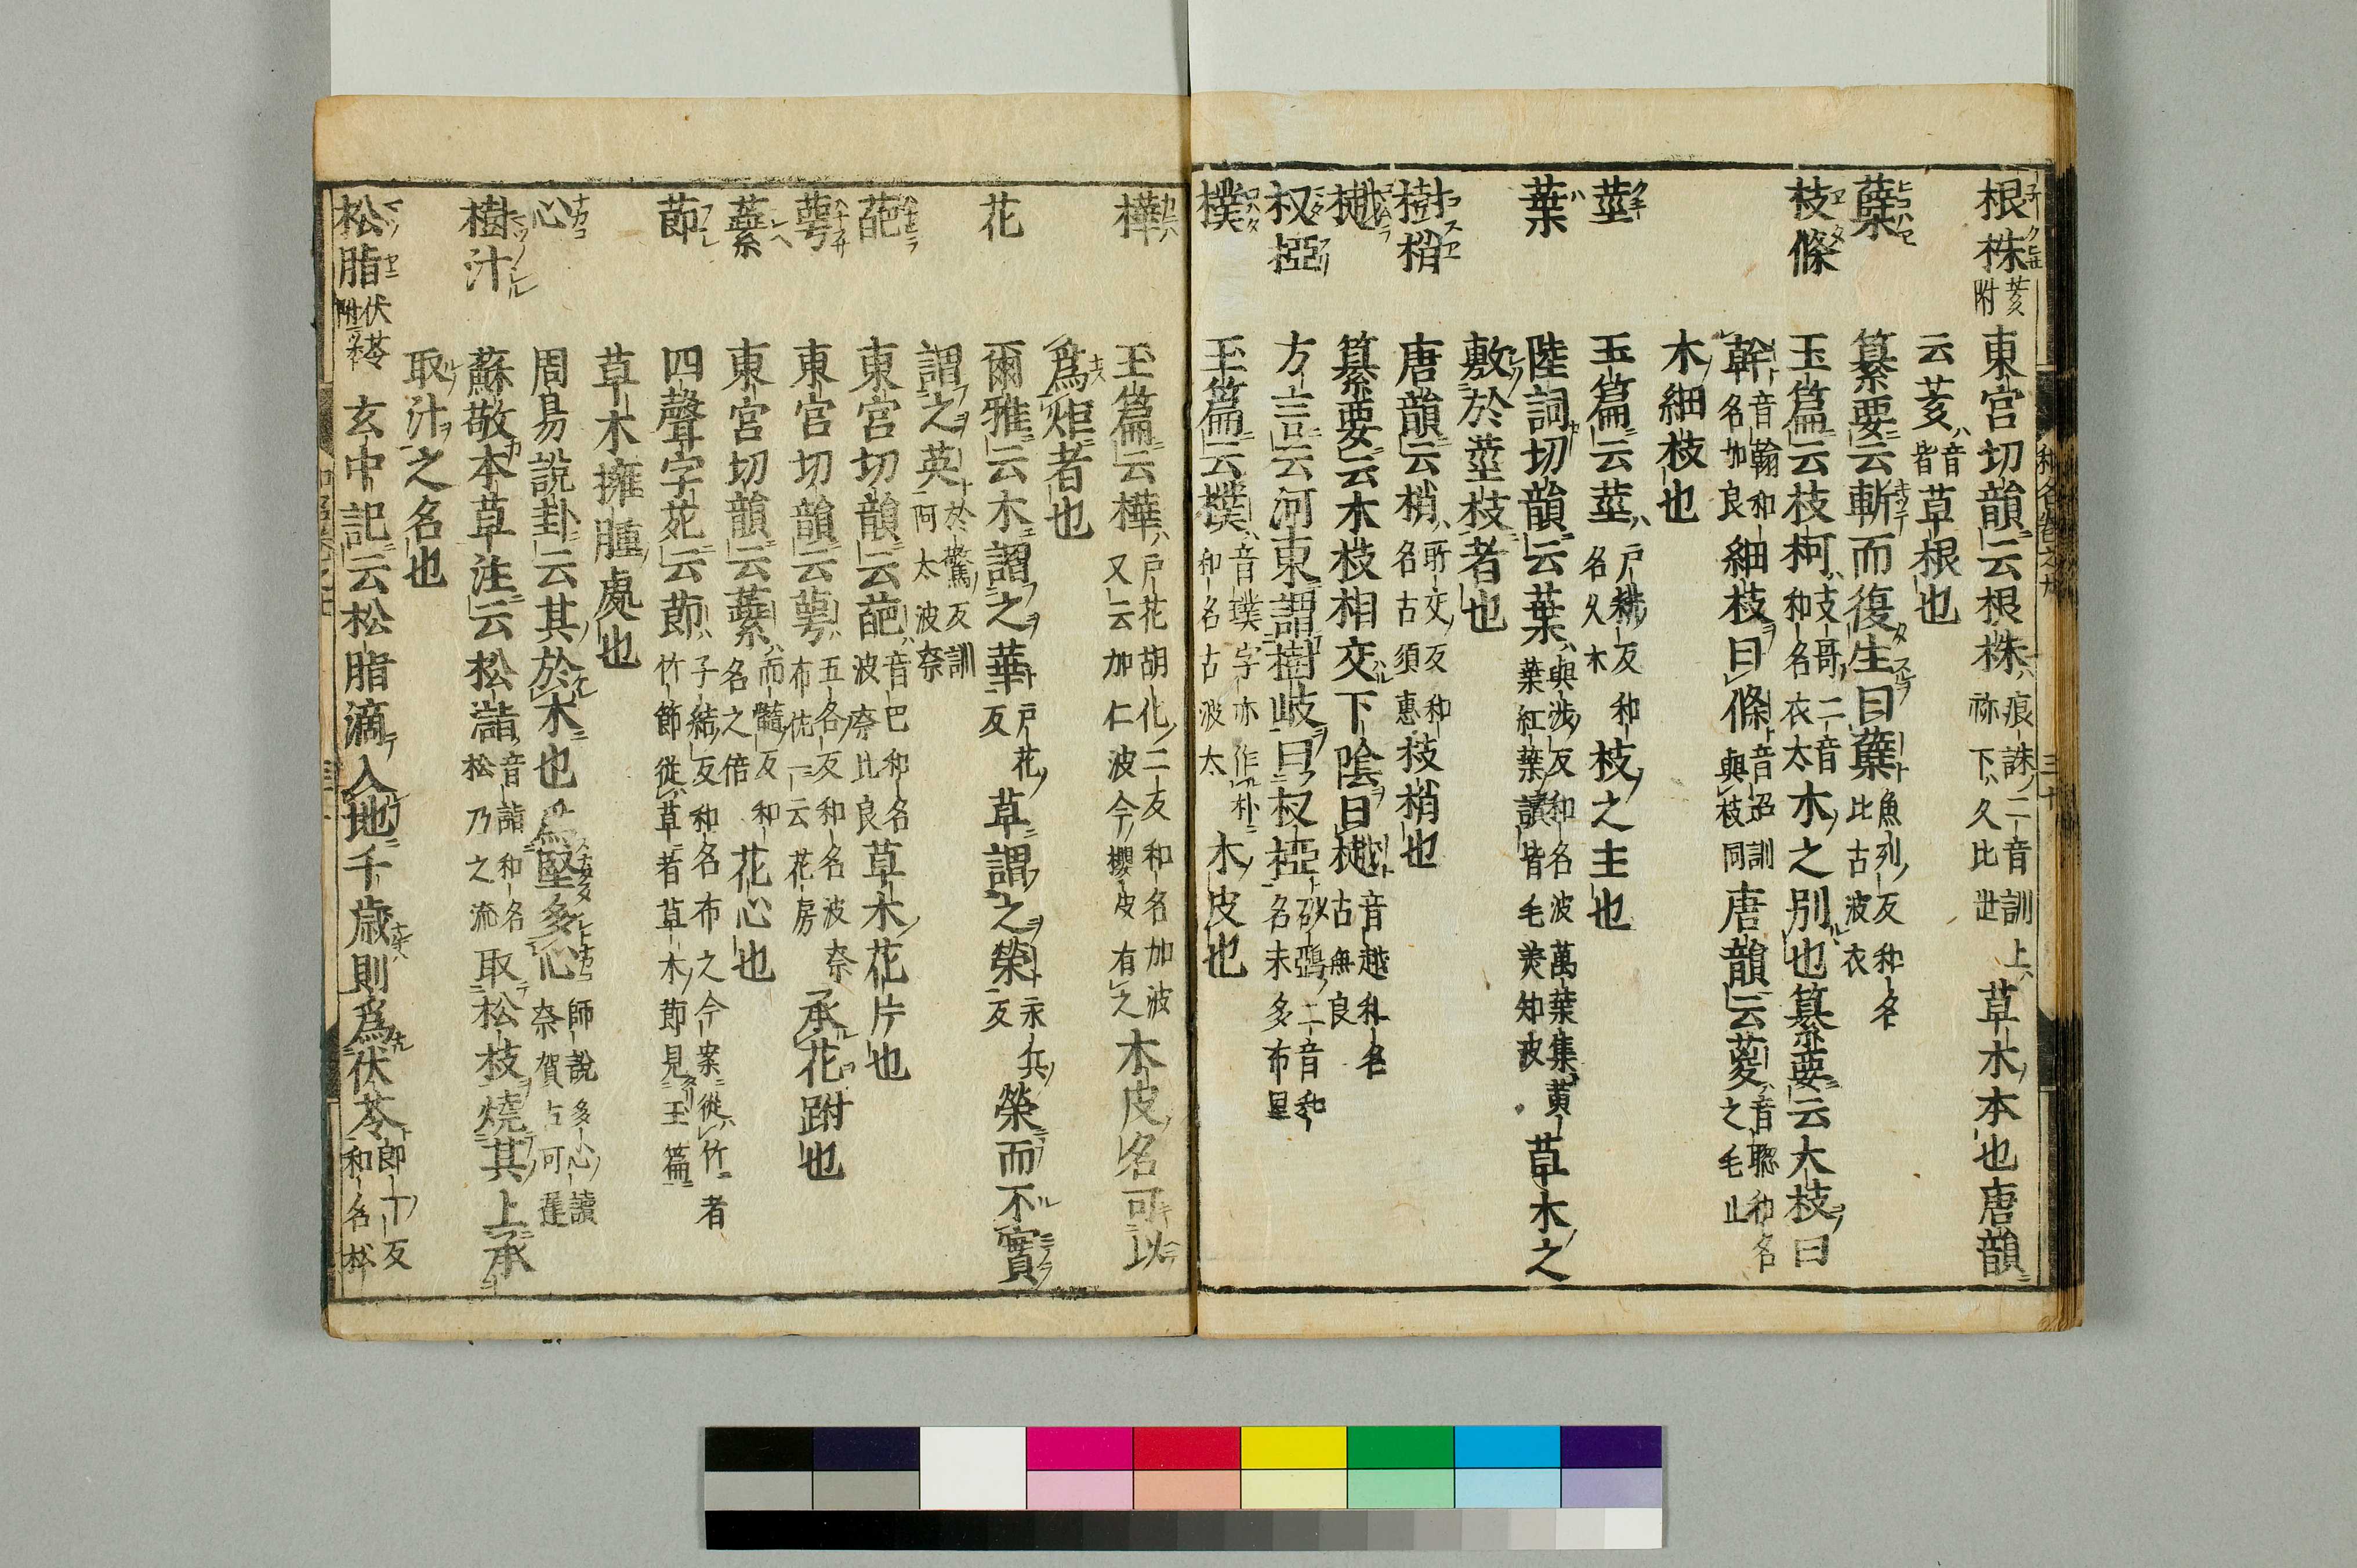 根株 荄附 東宮切韻云根株 痕誅二音訓上祢下久比世 草木本也唐韻
云荄 音皆 草根也
蘖 纂要云斬而復生曰蘖 魚列反和名比古波衣
枝條 玉篇云枝柯 支哥二音和名衣太 木之別也纂要云大枝曰
幹 音翰和名加良 細枝曰條 音迢訓與枝同 唐韻云葼 音聡和名之毛止
木細枝也
莖 玉篇云莖 戸耕反和名久木 枝之主也
葉 陸詞切韻云葉 與渉反和名波萬葉集黄葉紅葉讀皆毛美知波 草木之
敷於莖枝者也
樹梢 唐韻云梢 所交反和名古須惠 枝梢也
樾 纂要云木枝相交下陰曰樾 音越和名古無良
杈椏 方言云河東謂樹岐曰杈椏 砂鵶二音和名末多布里
樸 玉篇云樸 音璞字亦作朴和名古波太 木皮也
樺 玉篇云樺 戸花胡化二反和名加波又云加仁波今櫻皮有之 木皮名可以
爲炬者也
花 爾雅云木謂之華 戸花反 草謂之榮 永兵反 榮而不實
謂之英 於驚反訓阿太波奈
葩 東宮切韻云葩 音巴和名波奈比良 草木花片也
萼 東宮切韻云萼 五各反和名波奈布佐一云花房 承花跗也
蘂 東宮切韻云蘂 而髓反和名之倍 花心也
節 四聲字苑云節 子結反和名布之今案從竹者竹節從草者草木節見玉篇
草木擁腫處也
心 周易說卦云其於木也爲堅多心 師說多心讀奈賀古可遲
樹汁 蘇敬本草注云松㵖 音諧和名松乃之流 取松枝燒其上承
取汁之名也
松脂 伏苓附 玄中記云松脂滴入地千歳則爲伏苓 郎丁反和名松